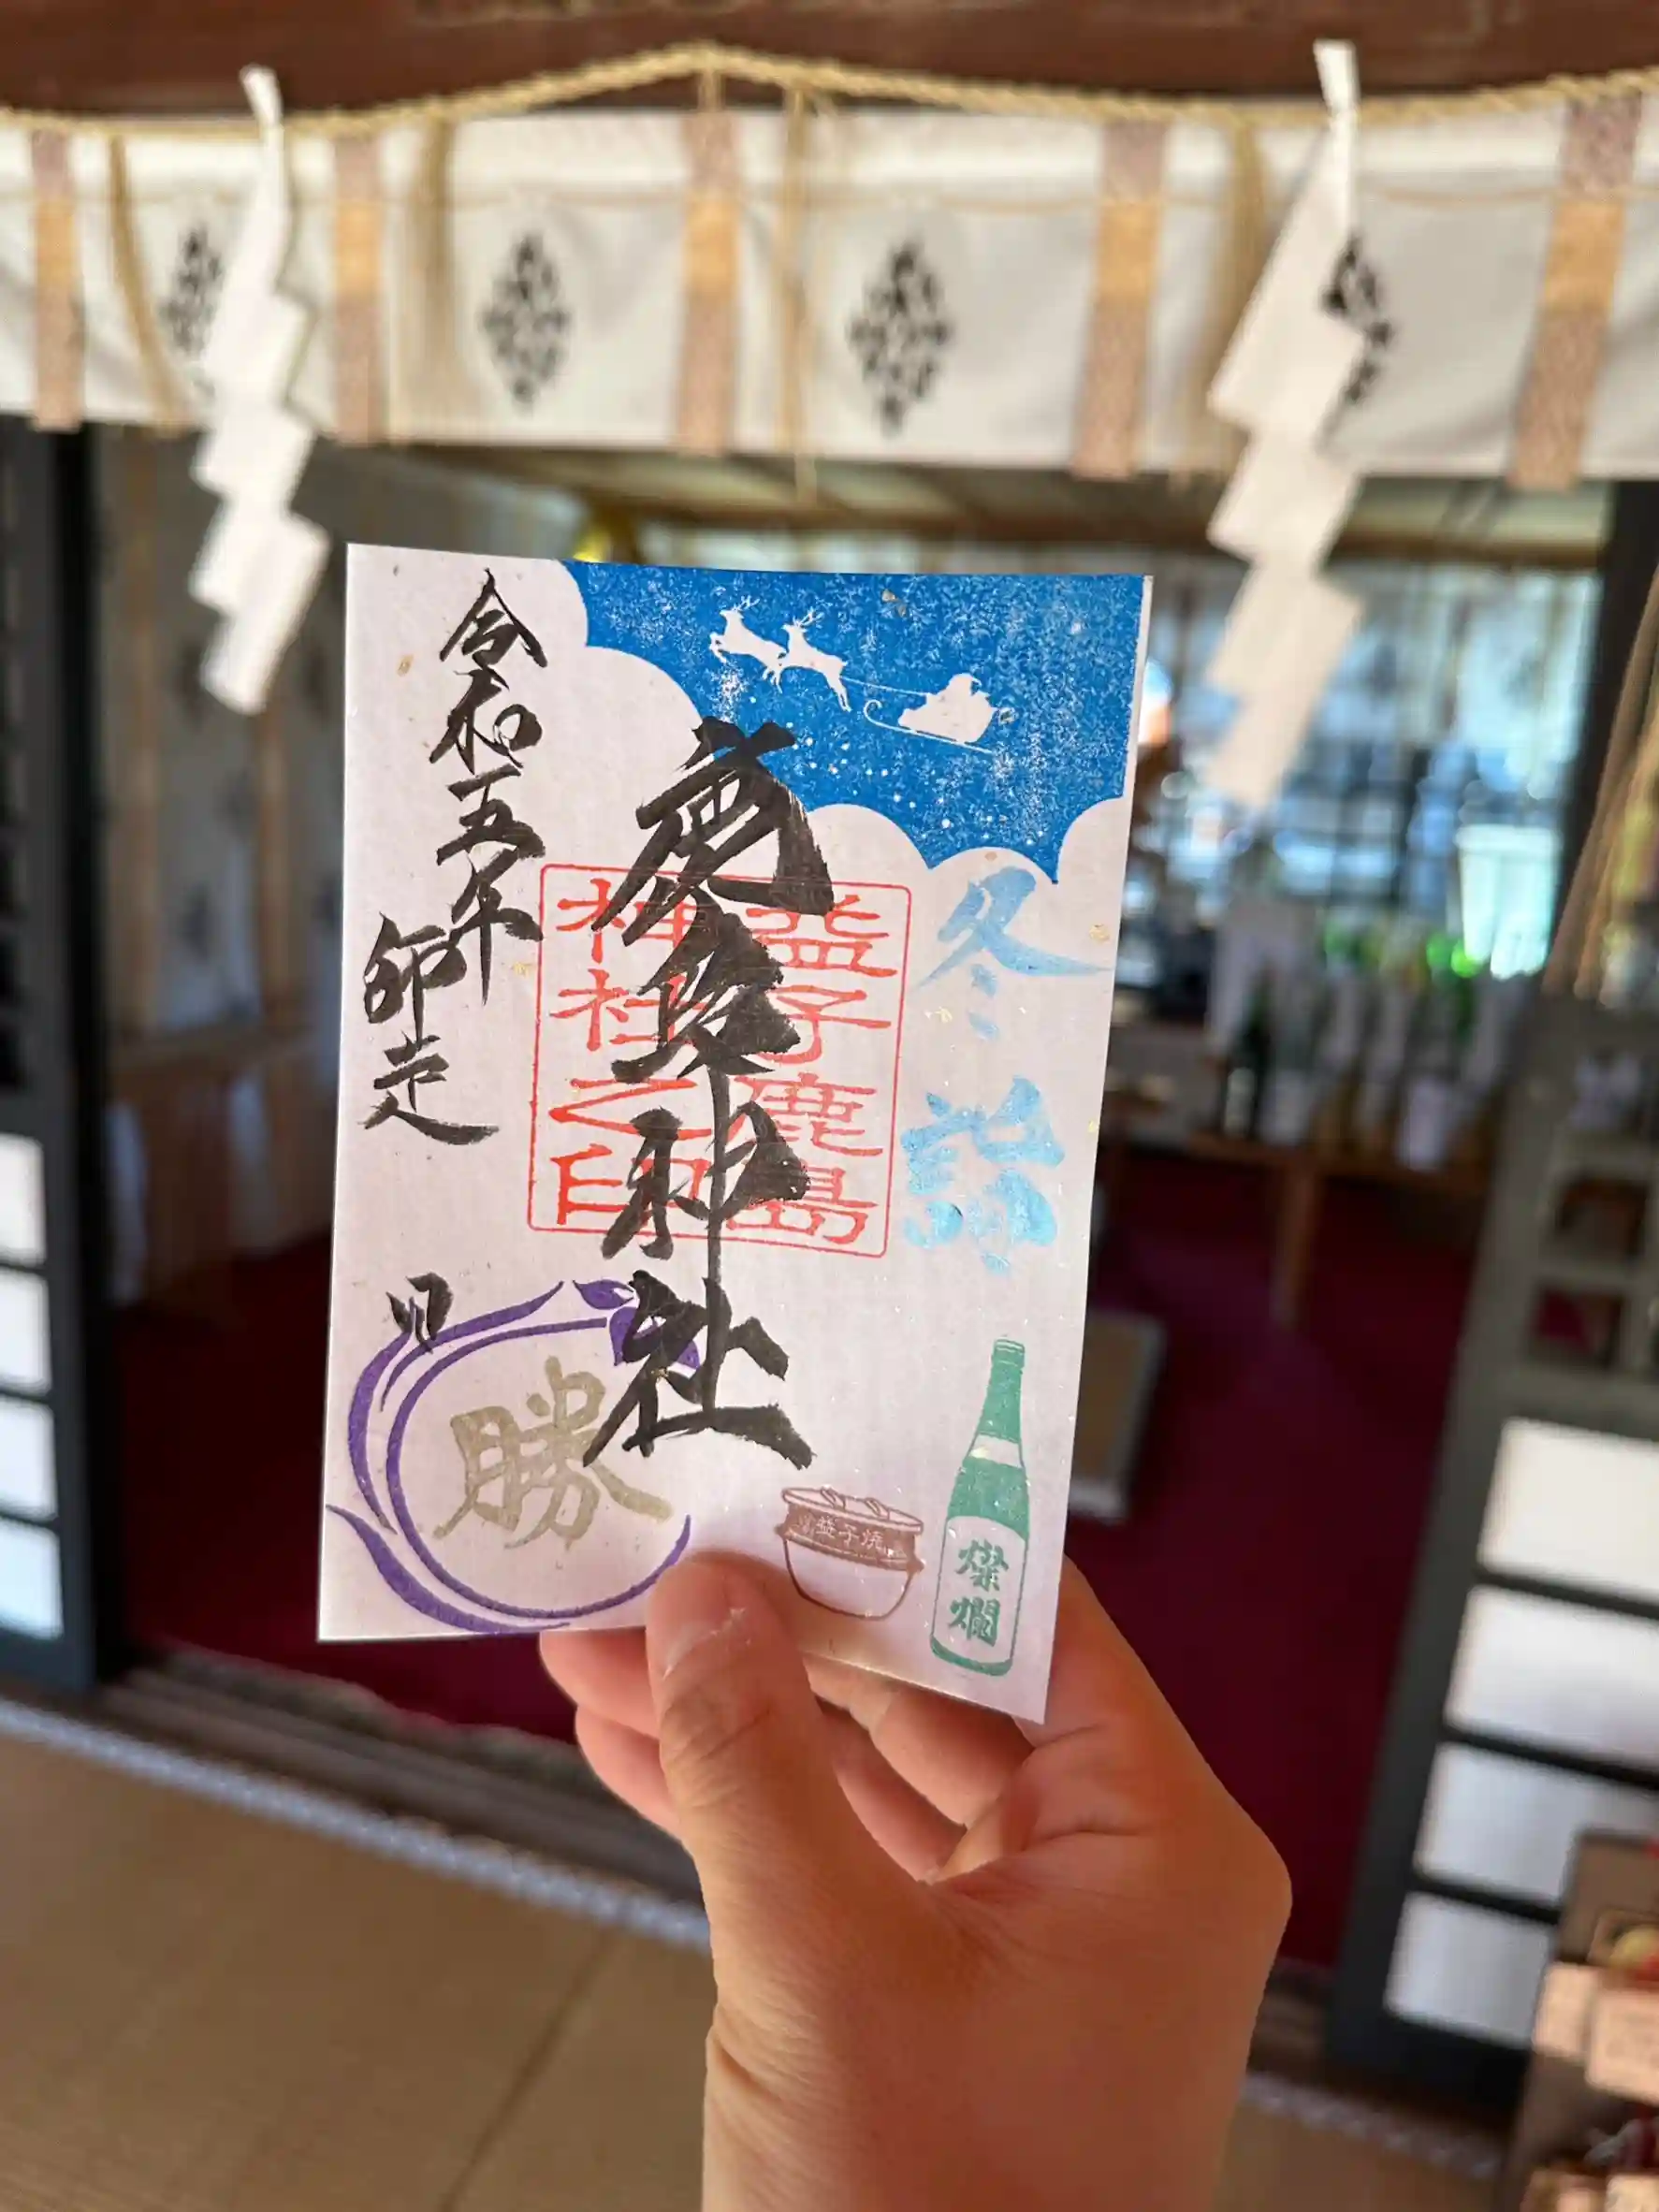 冬詣
鹿島神社
益子鹿島
神社之印
令和五年
師走
勝
益子焼
燦爛